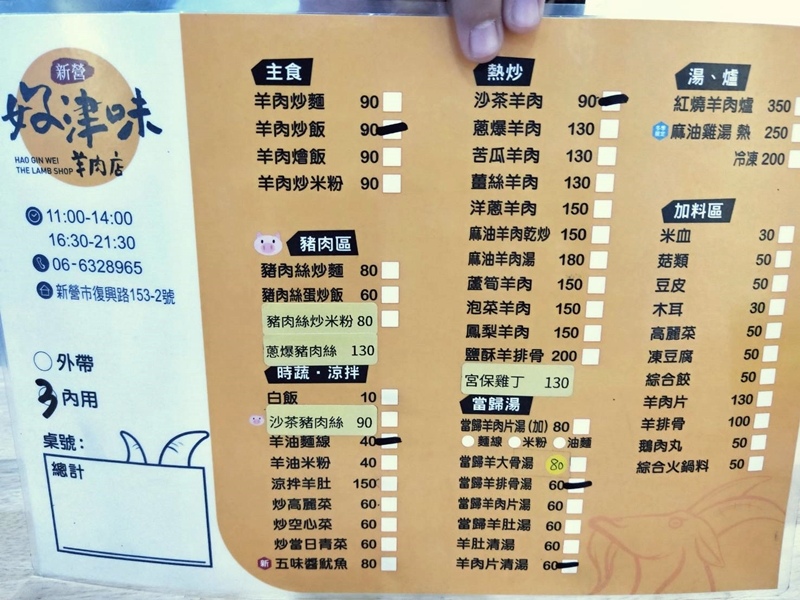 新營
好津味
HAO GIN WEI
THE LAMB SHOP
羊肉店
11:00-14:00
16:30-21:30
06-6328965
新營市復興路153-2號
外帶
3 內用
桌號:
總計
主食
羊肉炒麵 90
羊肉炒飯 90
羊肉燴飯 90
羊肉炒米粉 90
豬肉區
豬肉絲炒麵 80
豬肉絲蛋炒飯 60
豬肉絲炒米粉 80
蔥爆豬肉絲 130
時蔬・涼拌
白飯 10
沙茶豬肉絲 90
羊油麵線 40
羊油米粉 40
涼拌羊肚 150
炒高麗菜 60
炒空心菜 60
炒當日青菜 60
新 五味醬魷魚 80
熱炒
沙茶羊肉 90
蔥爆羊肉 130
苦瓜羊肉 130
薑絲羊肉 130
洋蔥羊肉 150
麻油羊肉乾炒 150
麻油羊肉湯 180
蘆筍羊肉 150
泡菜羊肉 150
鳳梨羊肉 150
鹽酥羊排骨 200
宮保雞丁 130
當歸湯
當歸羊肉片湯(加) 80
麵線 米粉 油麵
當歸羊大骨湯 80
當歸羊排骨湯 60
當歸羊肉片湯 60
當歸羊肚湯 60
羊肚清湯 60
羊肉片清湯 60
湯、爐
紅燒羊肉爐 350
麻油雞湯 熱 250
冷凍 200
加料區
米血 30
菇類 50
豆皮 50
木耳 30
高麗菜 50
凍豆腐 50
綜合餃 50
羊肉片 130
羊排骨 100
鵝肉丸 50
綜合火鍋料 50